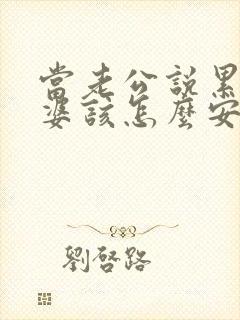 當老公說累
婆該怎麼安
劉啓路